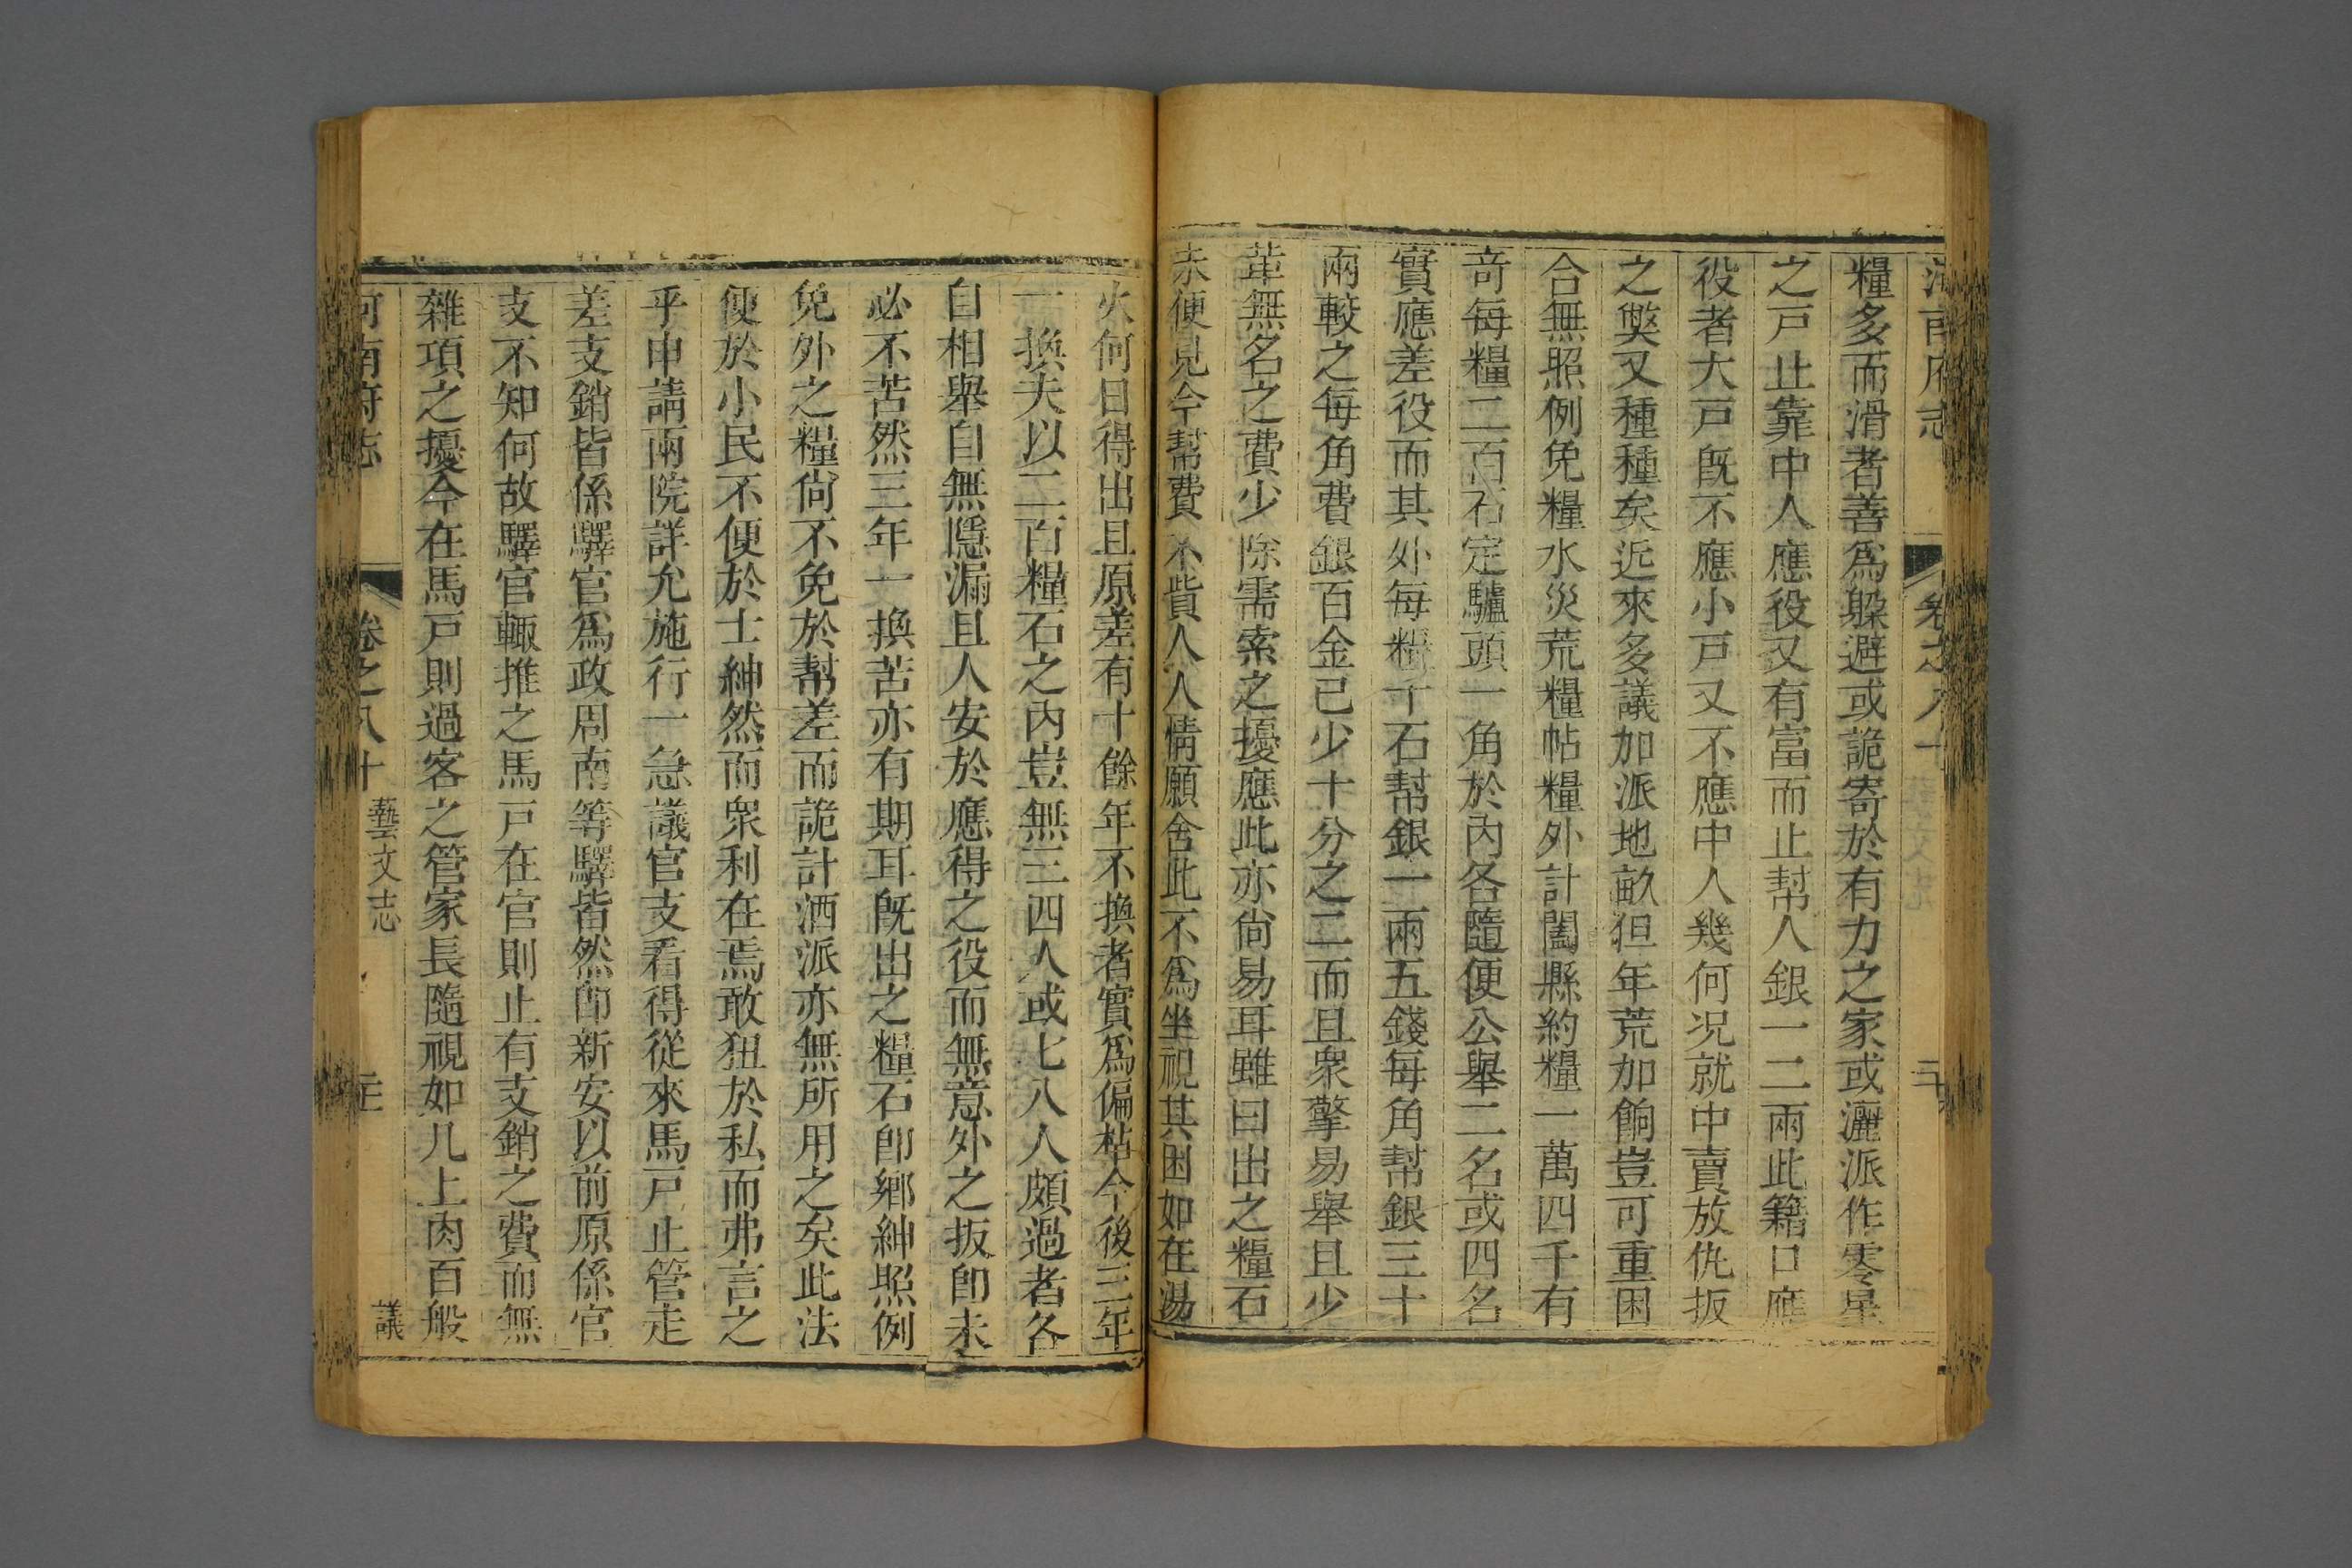 河南府志 卷之八十
糧多而滑者善爲躱避或詭寄於有力之家或灑派作零星
之戸止靠中人應役又有富而止幫人銀一二兩此籍口應
役者大戸既不應小戸又不應中人幾何况就中賣放仇扳
之獘又種種矣近來多議加派地畝但年荒加餉豈可重困
合無照例免糧水災荒糧帖糧外計闔縣約糧一萬四千有
奇每糧二百石定驢頭一角於內各隨便公舉二名或四名
實應差役而其外每糧十石幫銀一兩五錢每角幫銀三十
兩較之每角費銀百金已少十分之二而且衆擎易舉且少
革無名之費少除需索之擾應此亦尚易耳雖曰出之糧石
未便見今幫費不貲人人情願舍此不爲坐視其困如在湯
火何日得出且原差有十餘年不換者實爲偏枯今後三年
一換夫以二百糧石之內豈無三四人或七八人頗過者各
自相舉自無隱漏且人安於應得之役而無意外之扳卽未
必不苦然三年一換苦亦有期耳既出之糧石卽鄉紳照例
免外之糧尙不免於幫差而詭計洒派亦無所用之矣此法
便於小民不便於士紳然而衆利在焉敢狃於私而弗言之
乎申請兩院詳允施行一急議官支看得從來馬戸止管走
差支銷皆係驛官爲政周南等驛皆然卽新安以前原係官
支不知何故驛官輙推之馬戸在官則止有支銷之費而無
雜項之擾今在馬戸則過客之管家長隨視如几上肉百般
河南府志 卷之八十 藝文志 議